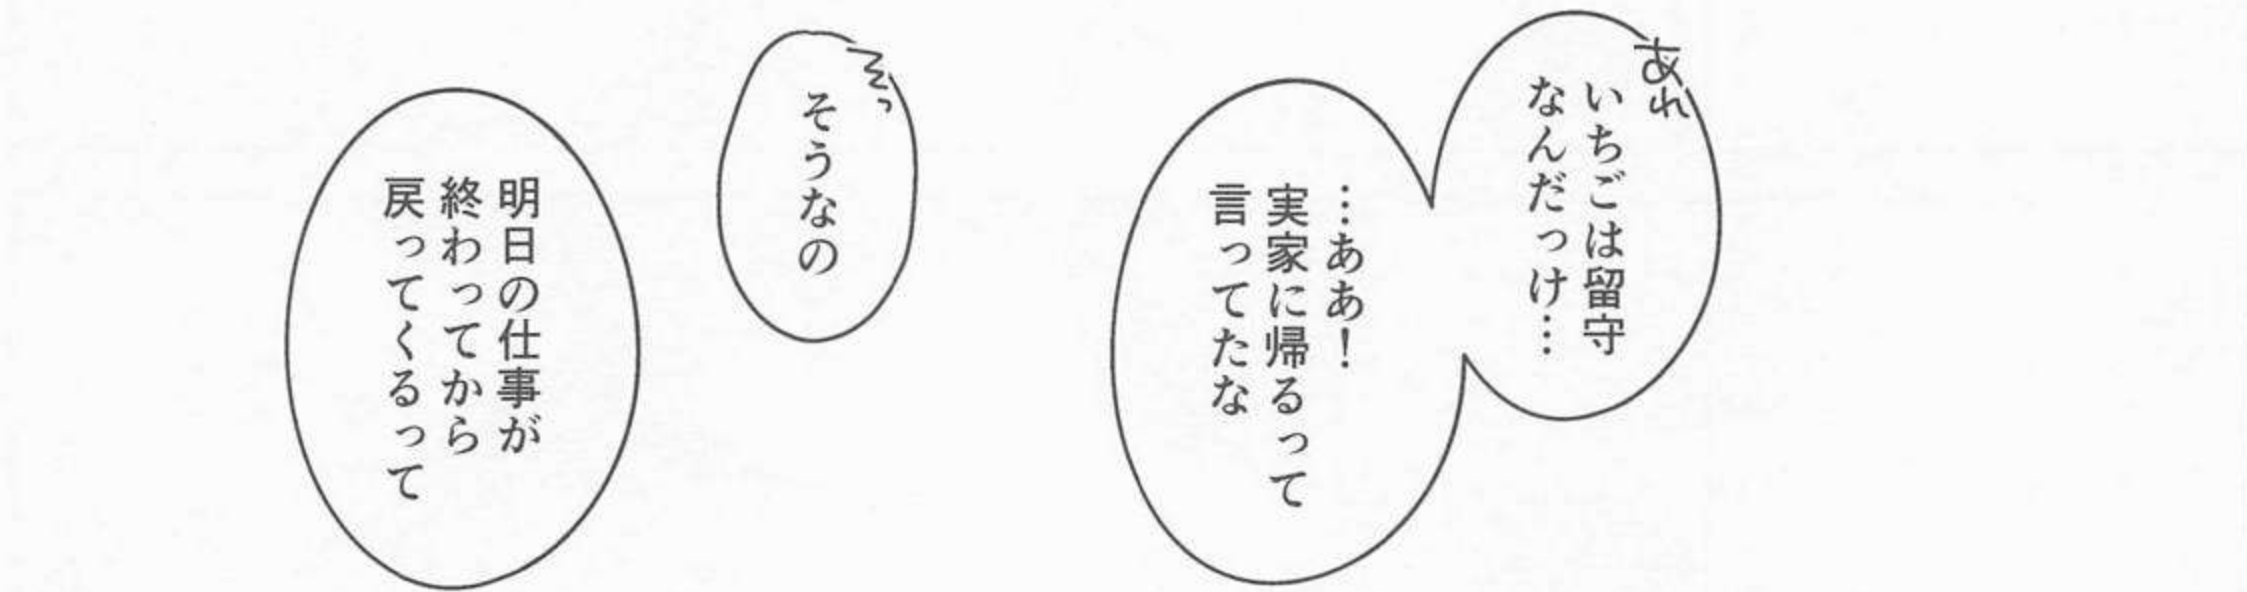 あれ
いちごは留守
なんだっけ…
…ああ！
実家に帰るって
言ってたな
そっ
そうなの
明日の仕事が
終わってから
戻ってくるって